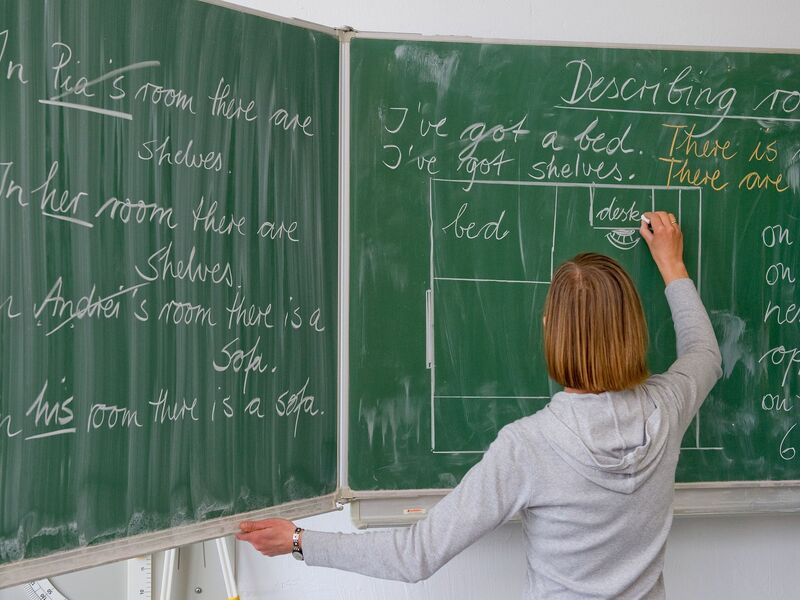 In Pia's room there are
shelves.
In her room there are
shelves.
In Andrei's room there is a
sofa.
In his room there is a sofa.
Describing
I've got a bed. There is
I've got shelves. There are
bed
desk
on
on
on
6